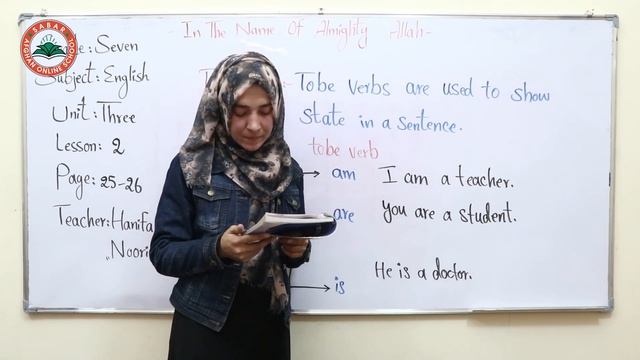 SABAR
AFGHAN ONLINE SCHOOL
In The Name Of Almighty Allah-
: Seven
Subject: English
Unit: Three
Lesson: 2
Page: 25-26
Teacher: Hanifa
"Noori
Tobe verbs are used to show
state in a sentence.
tobe verb
am I am a teacher.
are You are a student.
is He is a doctor.